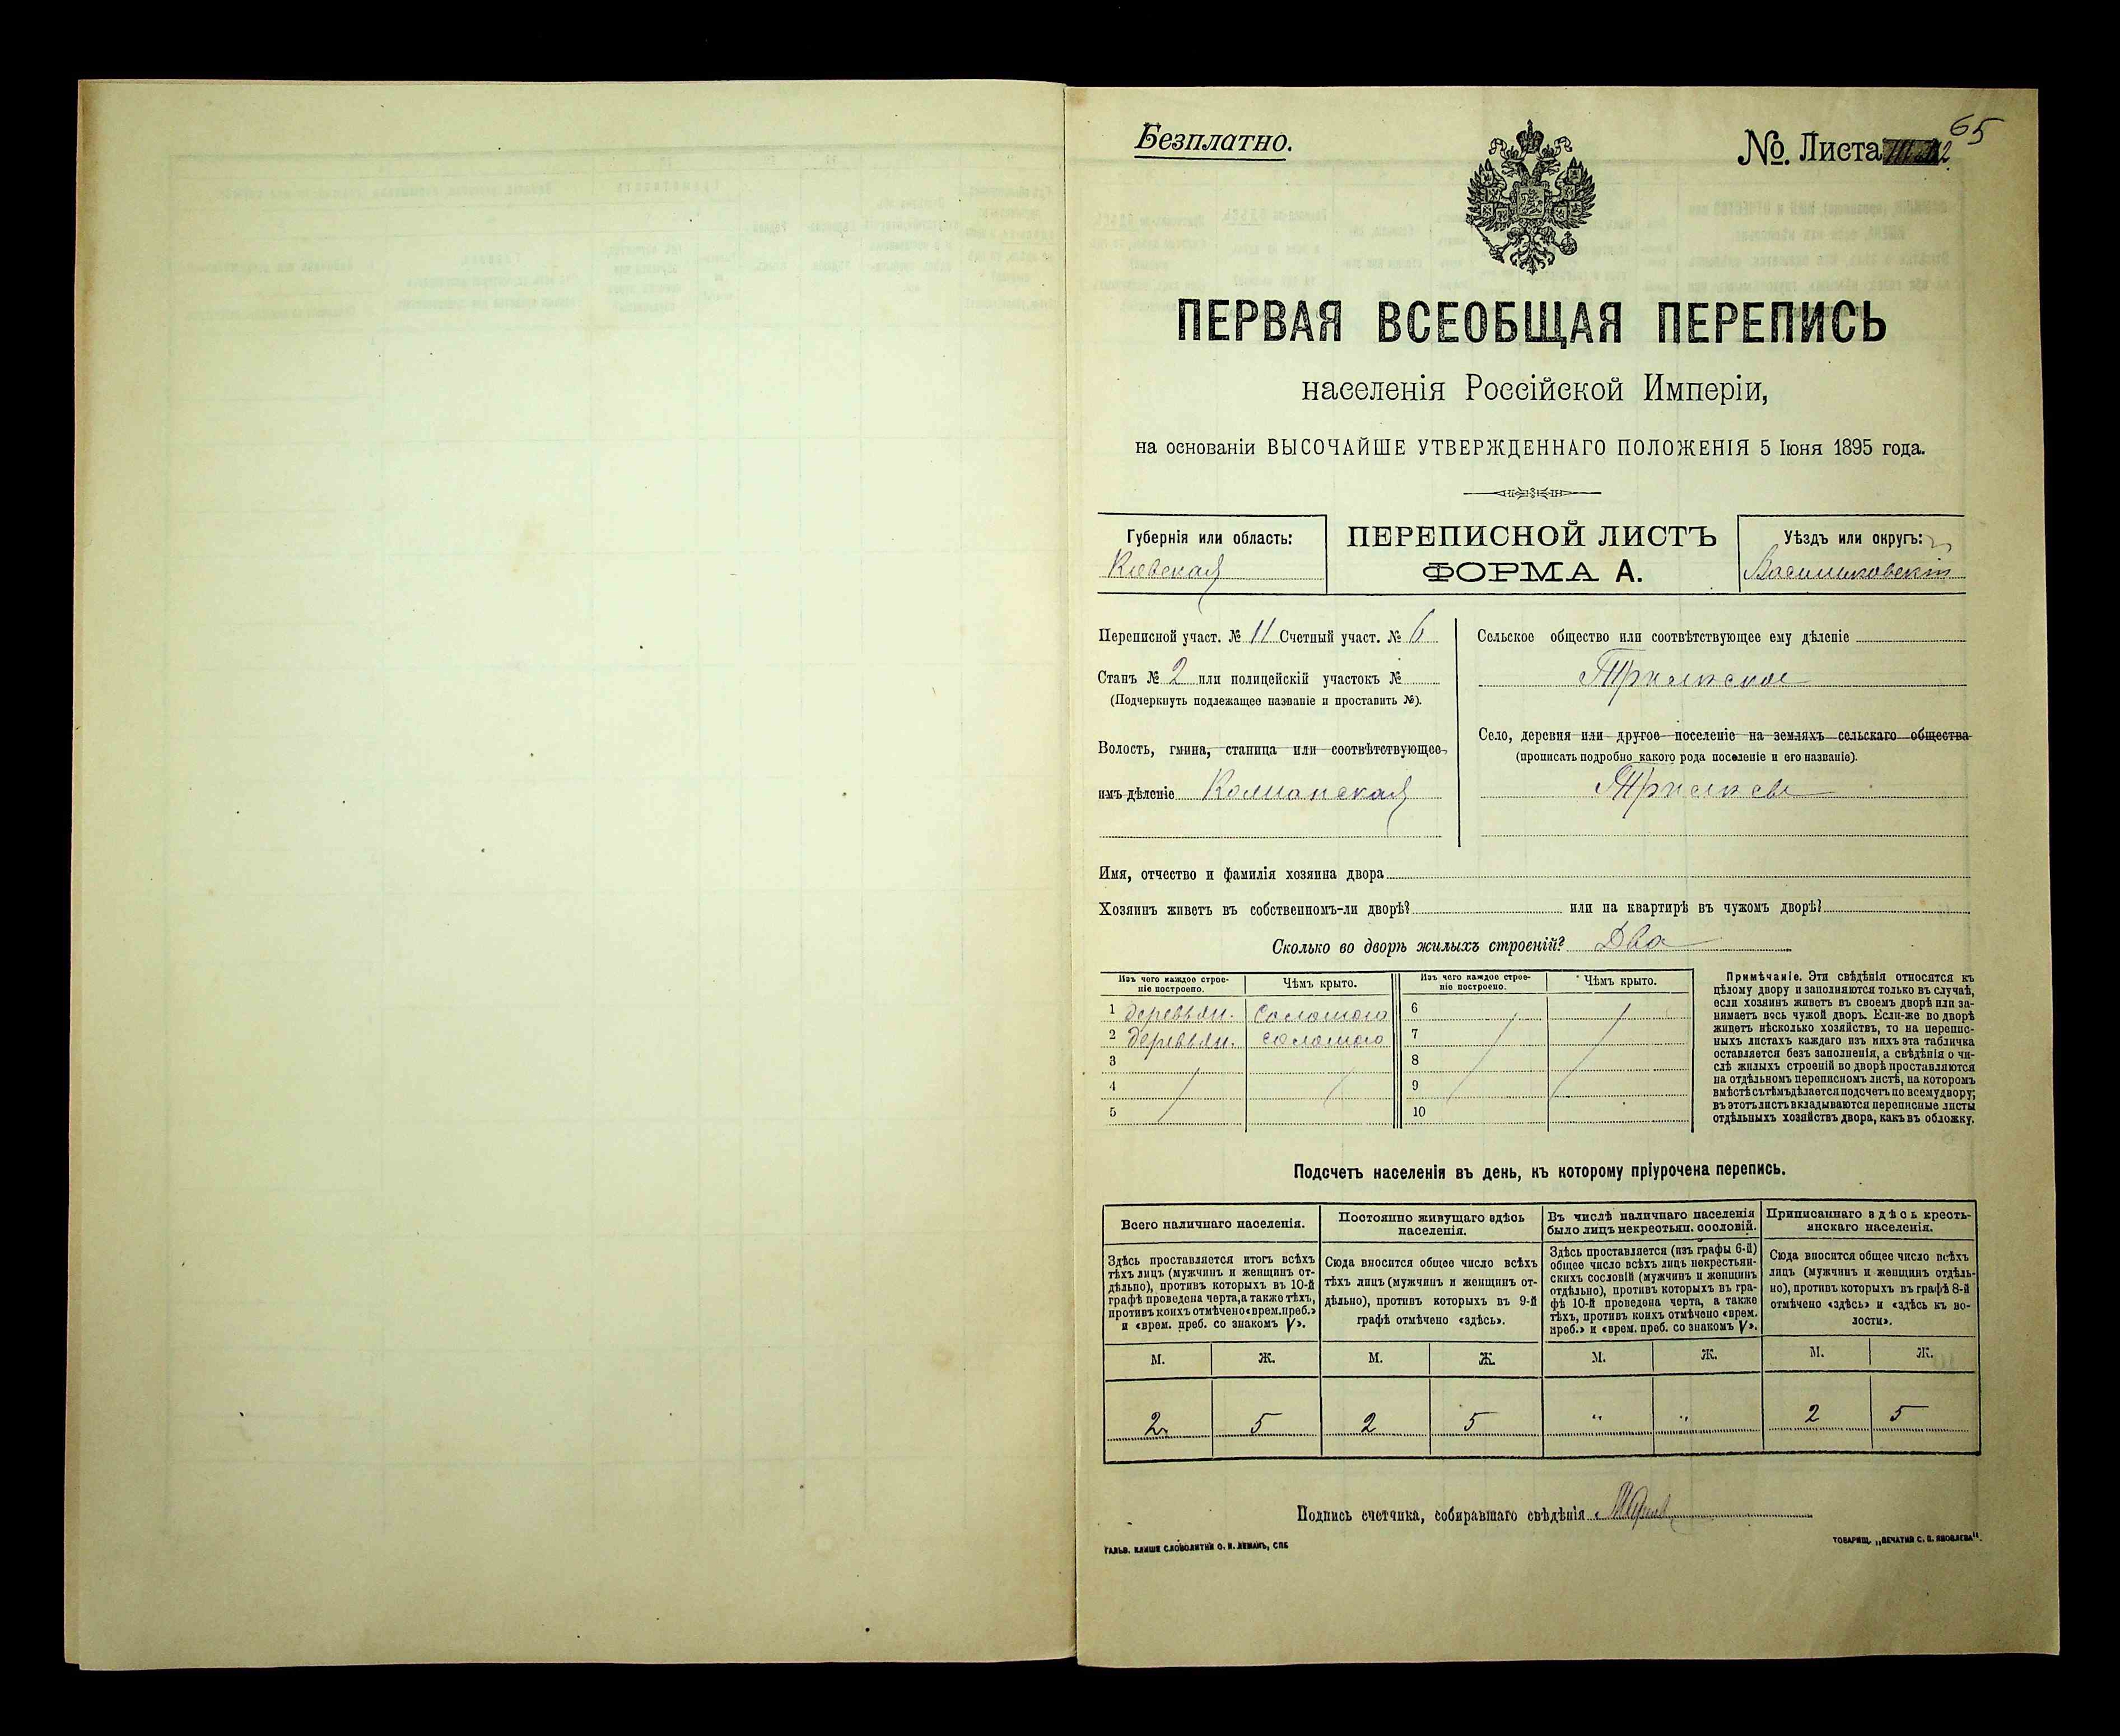 65
Безплатно.
№. Листа 12
ПЕРВАЯ ВСЕОБЩАЯ ПЕРЕПИСЬ
населенія Россійской Имперіи,
на основаніи ВЫСОЧАЙШЕ УТВЕРЖДЕННАГО ПОЛОЖЕНІЯ 5 Іюня 1895 года.
Губернія или область:
Кіевская
ПЕРЕПИСНОЙ ЛИСТЪ
ФОРМА А.
Уѣздъ или округъ:
Васильковскій
Переписной участ. № 11 Счетный участ. № 6
Станъ № 2 или полицейскій участокъ №
(Подчеркнуть подлежащее названіе и проставить №).
Волость, гмина, станица или соотвѣтствующее
имъ дѣленіе
Сельское общество или соотвѣтствующее ему дѣленіе
Трилиское
Село, деревня или другое поселеніе на земляхъ сельскаго общества
(прописать подробно какого рода поселеніе и его названіе).
Трилисы
Имя, отчество и фамилія хозяина двора
Хозяинъ живетъ въ собственномъ-ли дворѣ? или на квартирѣ въ чужомъ дворѣ?
Сколько во дворѣ жилыхъ строеній? Два
Изъ чего каждое строе-
ніе построено.
Чѣмъ крыто.
Изъ чего каждое строе-
ніе построено.
Чѣмъ крыто.
1 деревян. Соломою 6
2 деревян. соломою 7
3 8
4 9
5 10
Примѣчаніе. Эти свѣдѣнія относятся къ
цѣлому двору и заполняются только въ случаѣ,
если хозяинъ живетъ въ своемъ дворѣ или за-
нимаетъ весь чужой дворъ. Если-же во дворѣ
живетъ нѣсколько хозяйствъ, то на перепис-
ныхъ листахъ каждаго изъ нихъ эта табличка
оставляется безъ заполненія, а свѣдѣнія о чи-
слѣ жилыхъ строеній во дворѣ проставляются
на отдѣльномъ переписномъ листѣ, на которомъ
вмѣстѣ съ тѣмъ дѣлается подсчетъ по всему двору;
въ этотъ листъ вкладываются переписные листы
отдѣльныхъ хозяйствъ двора, какъ въ обложку.
Подсчетъ населенія въ день, къ которому пріурочена перепись.
Всего наличнаго населенія.
Здѣсь проставляется итогъ всѣхъ
тѣхъ лицъ (мужчинъ и женщинъ от-
дѣльно), противъ которыхъ въ 10-й
графѣ проведена черта, а также тѣхъ,
противъ коихъ отмѣчено «врем. преб.»
и «врем. преб. со знакомъ V».
Постоянно живущаго здѣсь
населенія.
Сюда вносится общее число всѣхъ
тѣхъ лицъ (мужчинъ и женщинъ от-
дѣльно), противъ которыхъ въ 9-й
графѣ отмѣчено «здѣсь».
Въ числѣ наличнаго населенія
было лицъ некрестьян. сословій.
Здѣсь проставляется (изъ графы 6-й)
общее число всѣхъ лицъ некрестьян-
скихъ сословій (мужчинъ и женщинъ
отдѣльно), противъ которыхъ въ гра-
фѣ 10-й проведена черта, а также
тѣхъ, противъ коихъ отмѣчено «врем.
преб.» и «врем. преб. со знакомъ V».
Приписаннаго здѣсь кресть-
янскаго населенія.
Сюда вносится общее число всѣхъ
лицъ (мужчинъ и женщинъ отдѣль-
но), противъ которыхъ въ графѣ 8-й
отмѣчено «здѣсь» и «здѣсь къ во-
лости».
М. Ж. М. Ж. М. Ж. М. Ж.
2 5 2 5 " " 2 5
Подпись счетчика, собиравшаго свѣдѣнія
ГАЛЬВ. КЛИШЕ СЛОВОЛИТНИ О. И. ЛЕМАНЪ, СПБ
ТОВАРИЩ. „ПЕЧАТНЯ С. П. ЯКОВЛЕВА".